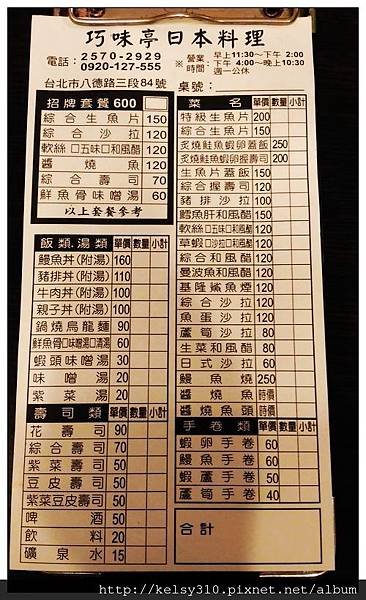 巧味亭日本料理
電話：2570-2929
0920-127-555
※營業時間：早上11:30～下午 2:00
下午 4:00～晚上10:30
週一公休
台北市八德路三段84號 桌號：
招牌套餐 600
綜合生魚片 150
綜合沙拉 120
軟絲□五味□和風醋 120
醬燒魚 120
綜合壽司 70
鮮魚骨味噌湯 60
以上套餐參考
飯類.湯類 單價 數量 小計
鰻魚丼(附湯) 160
豬排丼(附湯) 110
牛肉丼(附湯) 100
親子丼(附湯) 100
鍋燒烏龍麵 90
鮮魚骨□味噌湯□清湯 60
蝦頭味噌湯 30
味噌湯 20
紫菜湯 20
壽司類 單價 數量 小計
花壽司 90
綜合壽司 70
紫菜壽司 50
豆皮壽司 50
紫菜豆皮壽司 50
啤酒 50
飲料 20
礦泉水 15
菜名 單價 數量 小計
特級生魚片 200
綜合生魚片 150
炙燒鮭魚蝦卵蓋飯 250
炙燒鮭魚蝦卵握壽司 200
生魚片蓋飯 150
綜合握壽司 120
豬排沙拉 120
綜合生魚片 150
鱈魚肝和風醋 150
軟絲□五味□和風醋 120
草蝦□沙拉□和風醋 120
綜合和風醋 120
曼波魚和風醋 120
基隆鯊魚煙 120
綜合沙拉 120
魚蛋沙拉 120
蘆筍沙拉 80
生菜和風醋 80
日式沙拉 60
鰻魚燒 250
醬燒魚 時價
醬燒魚頭 時價
手卷類 單價 數量 小計
蝦卵手卷 60
鰻魚手卷 60
蝦蘆手卷 50
蘆筍手卷 40
合計
http://kelsy310.pixnet.net/album